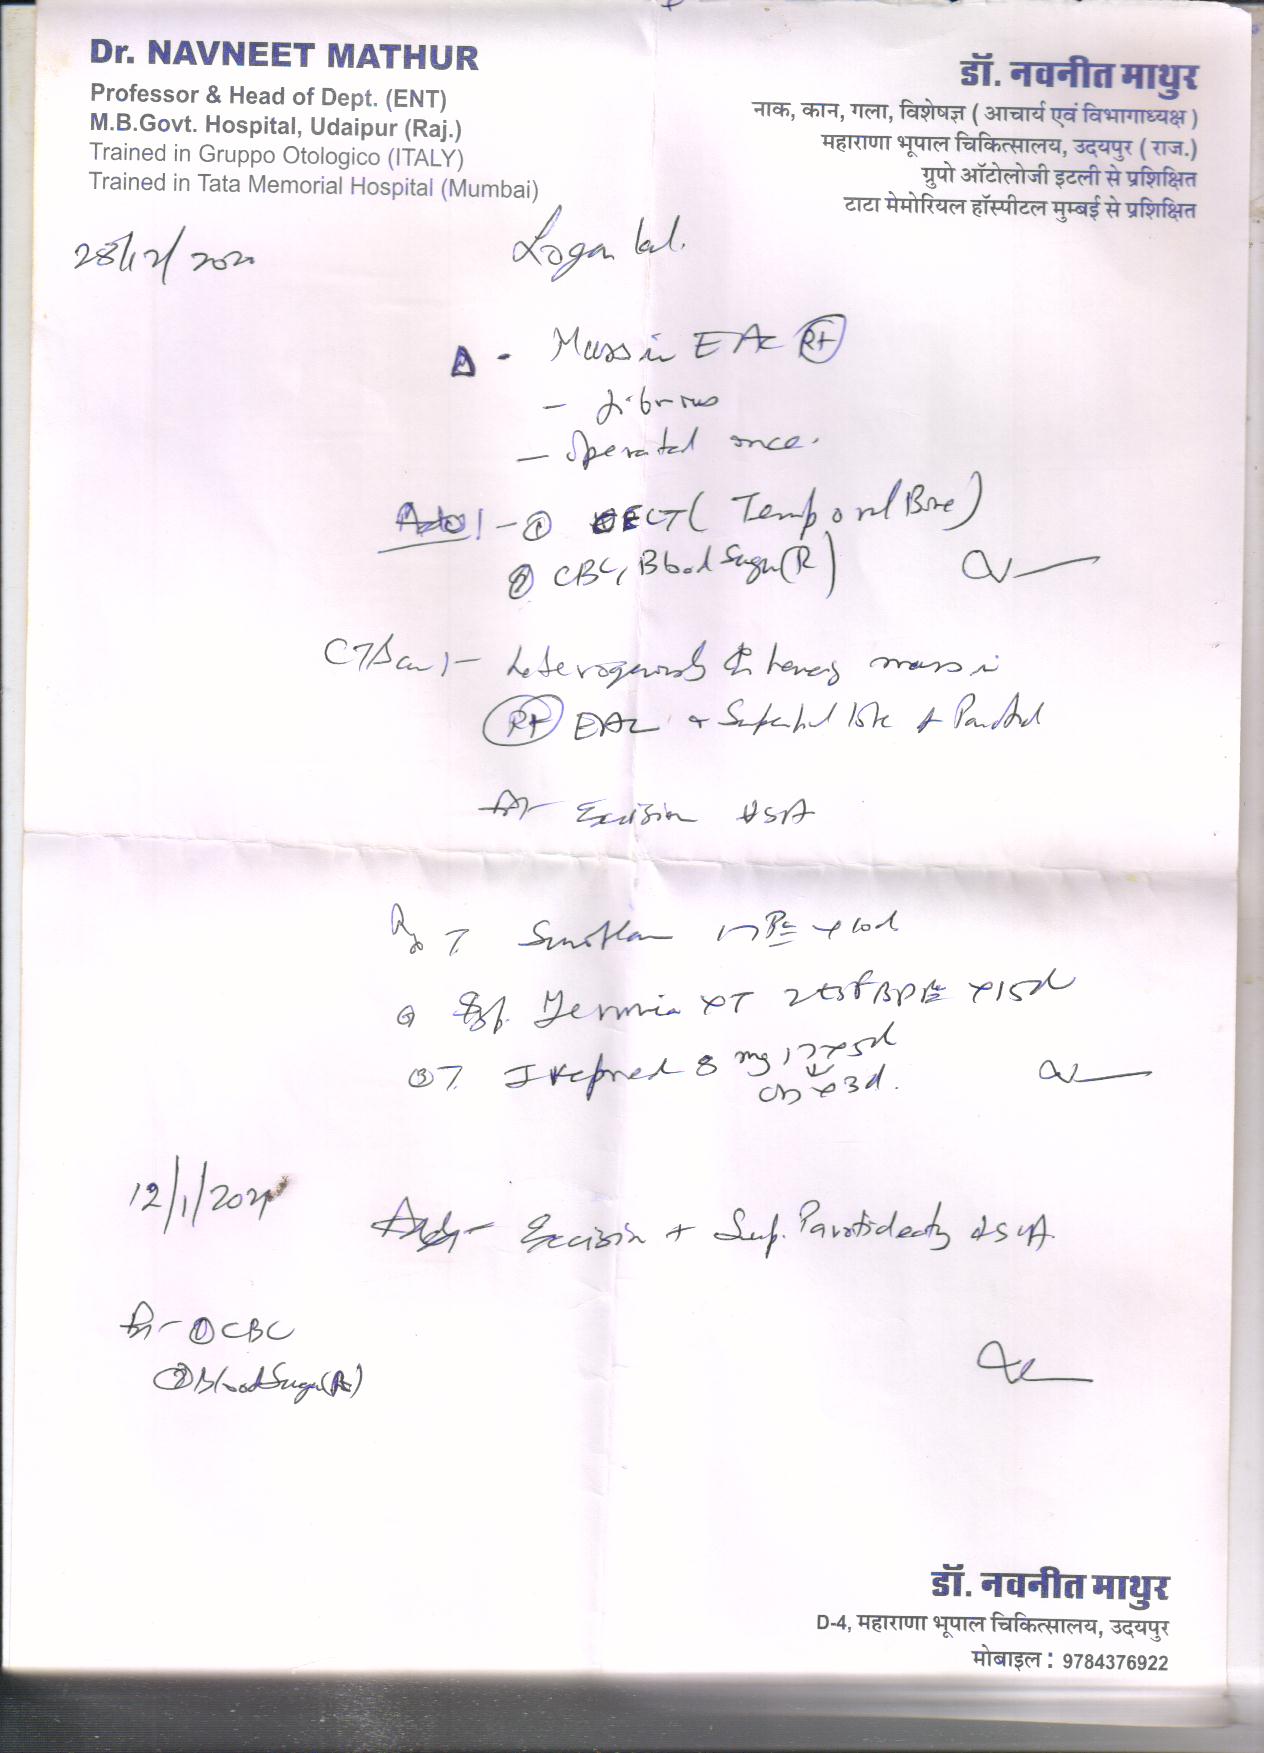 Dr. NAVNEET MATHUR
Professor & Head of Dept. (ENT)
M.B.Govt. Hospital, Udaipur (Raj.)
Trained in Gruppo Otologico (ITALY)
Trained in Tata Memorial Hospital (Mumbai)
डॉ. नवनीत माथुर
नाक, कान, गला, विशेषज्ञ ( आचार्य एवं विभागाध्यक्ष )
महाराणा भूपाल चिकित्सालय, उदयपुर ( राज.)
ग्रुपो ऑटोलोजी इटली से प्रशिक्षित
टाटा मेमोरियल हॉस्पीटल मुम्बई से प्रशिक्षित
28/12/202
Logan lal.
Δ - Mass in EAC Rt
- fibrous
- Operated once.
① CT ( Temporal Bone )
② CBC, Blood Sugar (R)
CT Scan :- heterogenously mass in
Rt EAC + Superficial lobe of Parotid
Excision
Rx T x 10d
② XT x 15d
③ T. 8 mg x 5d
OD x 3d.
12/1/202
Adv - Excision + Sup. Parotidectomy
① CBC
② Blood Sugar (R)
डॉ. नवनीत माथुर
D-4, महाराणा भूपाल चिकित्सालय, उदयपुर
मोबाइल : 9784376922